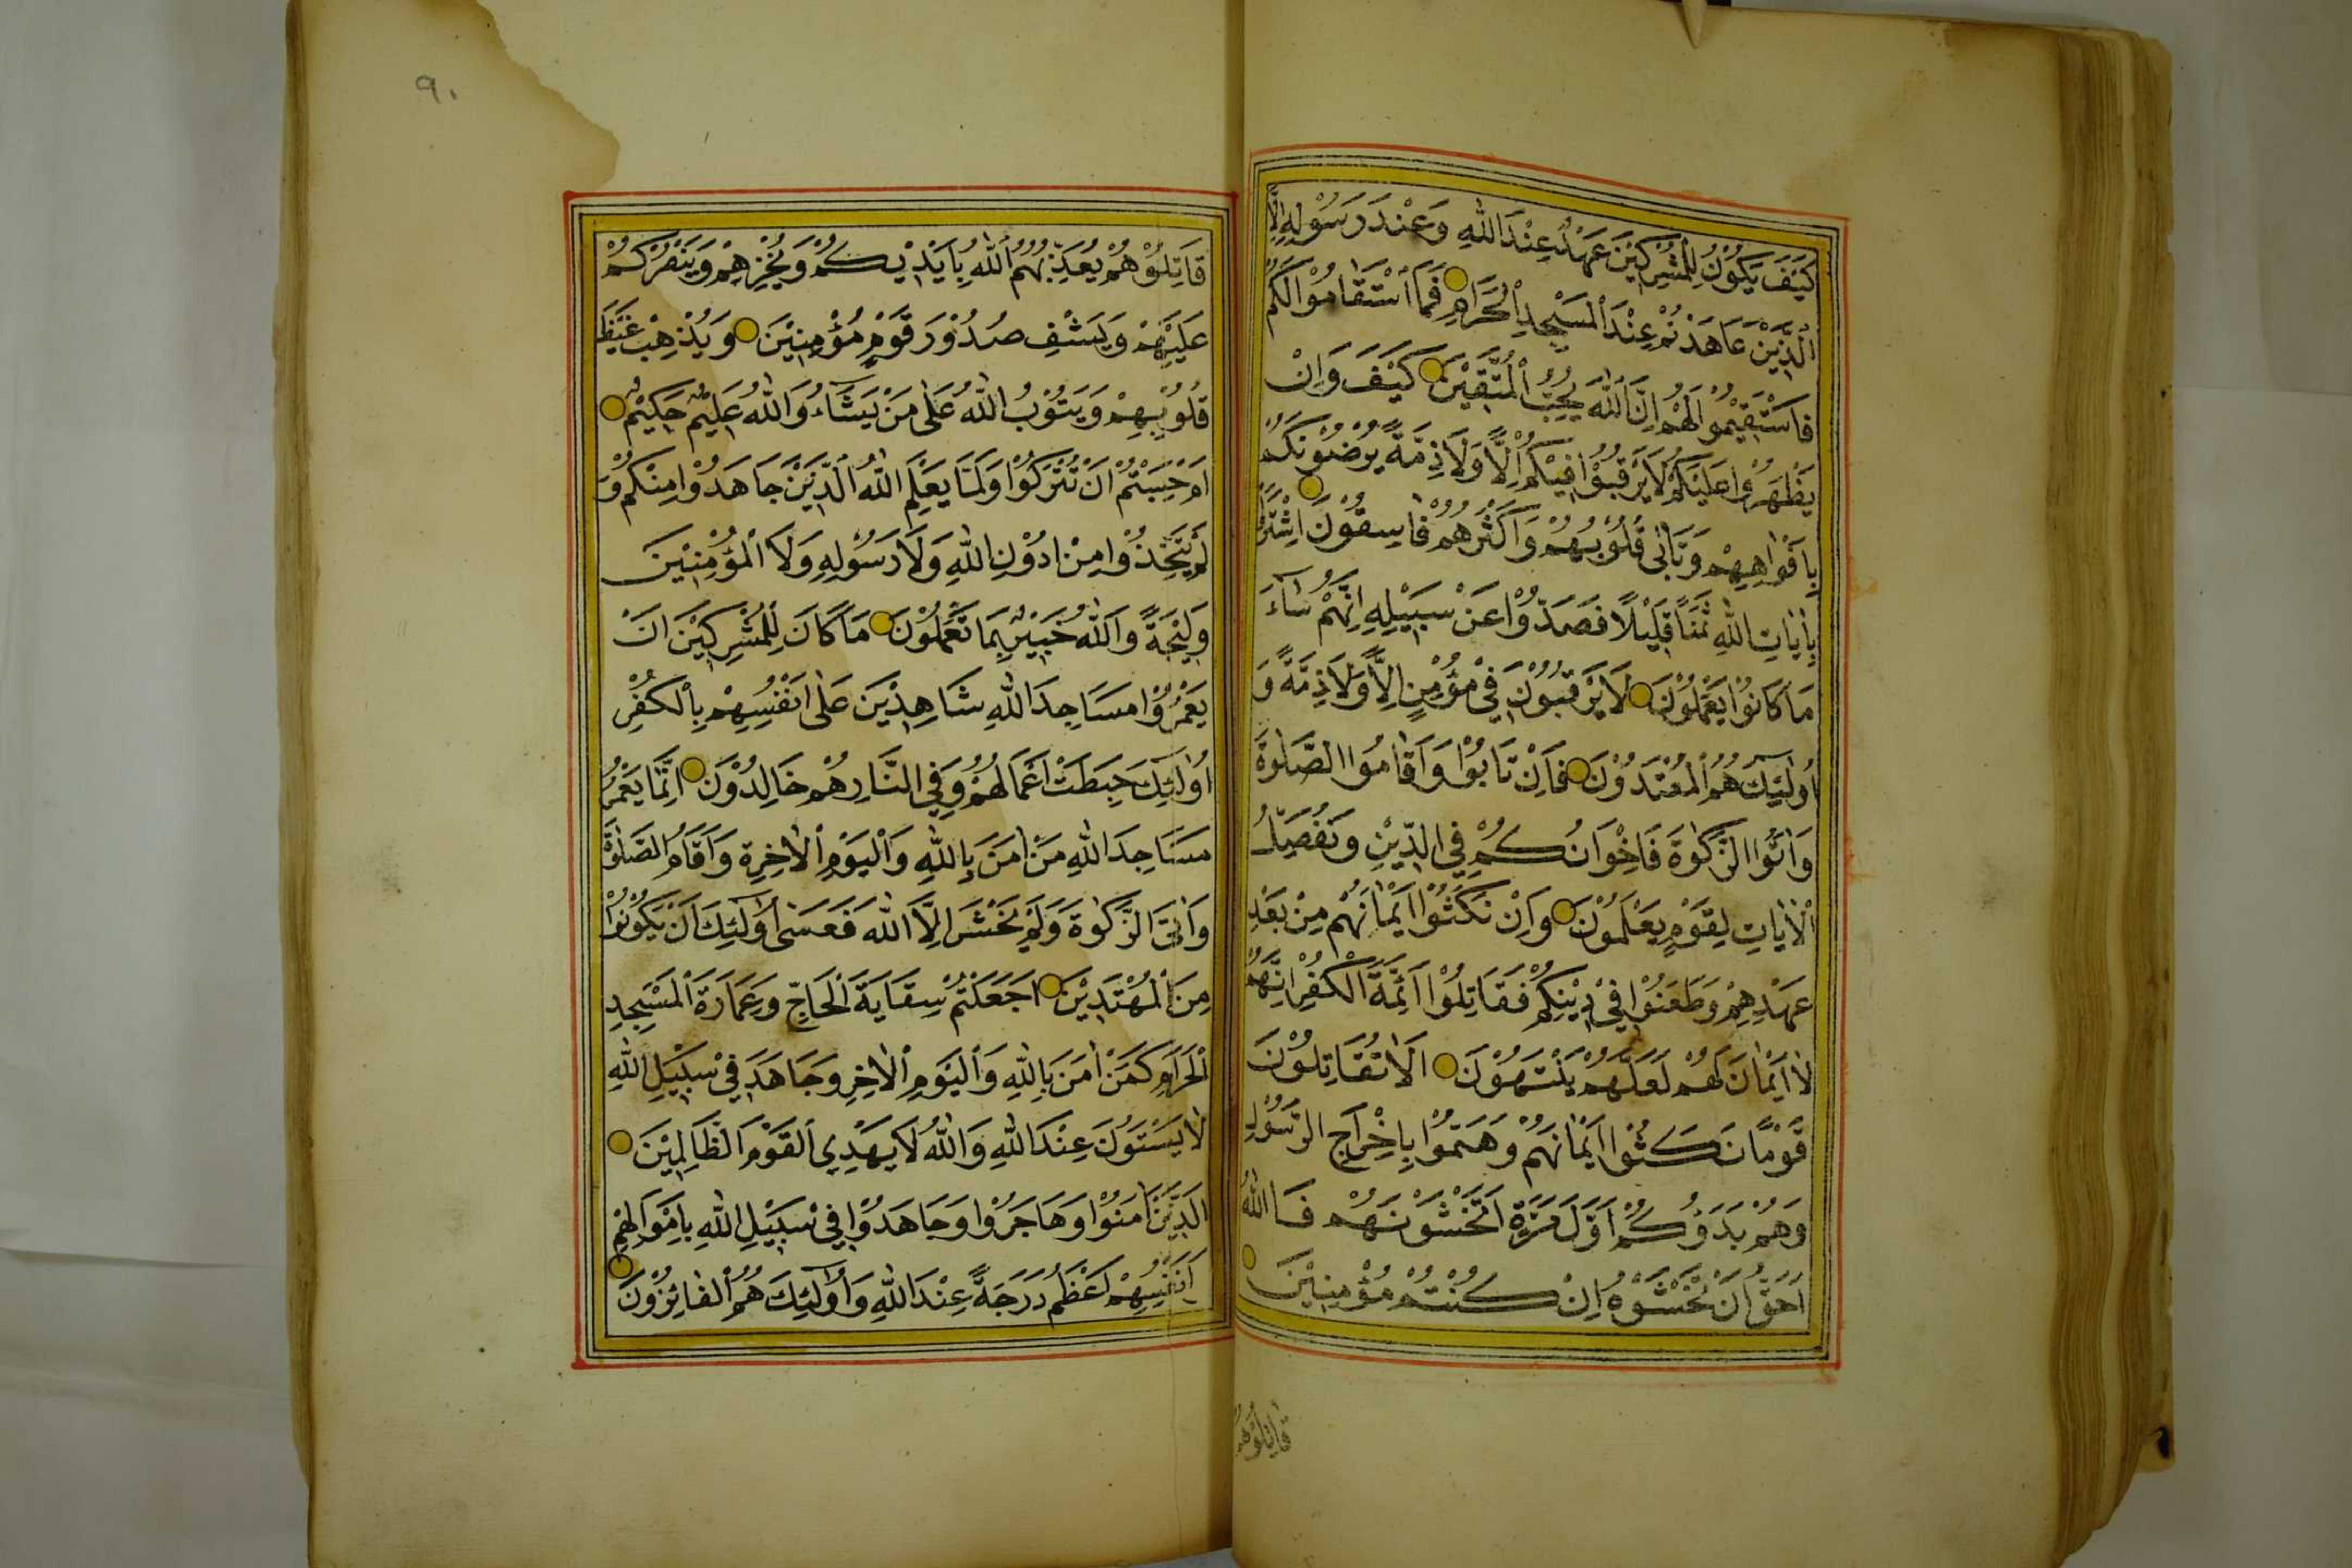 كَيْفَ يَكُوْنُ لِلْمُشْرِكِيْنَ عَهْدٌ عِنْدَ اللّٰهِ وَعِنْدَ رَسُوْلِهِ اِلَّا
الَّذِيْنَ عَاهَدْتُمْ عِنْدَ الْمَسْجِدِ الْحَرَامِ فَمَا اسْتَقَامُوْا لَكُمْ
فَاسْتَقِيْمُوْا لَهُمْ اِنَّ اللّٰهَ يُحِبُّ الْمُتَّقِيْنَ كَيْفَ وَاِنْ
يَظْهَرُوْا عَلَيْكُمْ لَا يَرْقُبُوْا فِيْكُمْ اِلًّا وَلَا ذِمَّةً يُرْضُوْنَكُمْ
بِاَفْوَاهِهِمْ وَتَأْبٰى قُلُوْبُهُمْ وَاَكْثَرُهُمْ فَاسِقُوْنَ اِشْتَرَوْا
بِاٰيَاتِ اللّٰهِ ثَمَنًا قَلِيْلًا فَصَدُّوْا عَنْ سَبِيْلِهِ اِنَّهُمْ سَاۤءَ
مَا كَانُوْا يَعْمَلُوْنَ لَا يَرْقُبُوْنَ فِيْ مُؤْمِنٍ اِلًّا وَلَا ذِمَّةً وَ
اُولٰۤئِكَ هُمُ الْمُعْتَدُوْنَ فَاِنْ تَابُوْا وَاَقَامُوا الصَّلٰوةَ
وَاٰتَوُا الزَّكٰوةَ فَاِخْوَانُكُمْ فِي الدِّيْنِ وَنُفَصِّلُ
الْاٰيَاتِ لِقَوْمٍ يَعْلَمُوْنَ وَاِنْ نَكَثُوْا اَيْمَانَهُمْ مِنْ بَعْدِ
عَهْدِهِمْ وَطَعَنُوْا فِيْ دِيْنِكُمْ فَقَاتِلُوْا اَئِمَّةَ الْكُفْرِ اِنَّهُمْ
لَا اَيْمَانَ لَهُمْ لَعَلَّهُمْ يَنْتَهُوْنَ اَلَا تُقَاتِلُوْنَ
قَوْمًا نَكَثُوْا اَيْمَانَهُمْ وَهَمُّوْا بِاِخْرَاجِ الرَّسُوْلِ
وَهُمْ بَدَؤُكُمْ اَوَّلَ مَرَّةٍ اَتَخْشَوْنَهُمْ فَاللّٰهُ
اَحَقُّ اَنْ تَخْشَوْهُ اِنْ كُنْتُمْ مُؤْمِنِيْنَ
قَاتِلُوْهُمْ
٩٠
قَاتِلُوْهُمْ يُعَذِّبْهُمُ اللّٰهُ بِاَيْدِيْكُمْ وَيُخْزِهِمْ وَيَنْصُرْكُمْ
عَلَيْهِمْ وَيَشْفِ صُدُوْرَ قَوْمٍ مُؤْمِنِيْنَ وَيُذْهِبْ غَيْظَ
قُلُوْبِهِمْ وَيَتُوْبُ اللّٰهُ عَلٰى مَنْ يَشَاۤءُ وَاللّٰهُ عَلِيْمٌ حَكِيْمٌ
اَمْ حَسِبْتُمْ اَنْ تُتْرَكُوْا وَلَمَّا يَعْلَمِ اللّٰهُ الَّذِيْنَ جَاهَدُوْا مِنْكُمْ وَ
لَمْ يَتَّخِذُوْا مِنْ دُوْنِ اللّٰهِ وَلَا رَسُوْلِهِ وَلَا الْمُؤْمِنِيْنَ
وَلِيْجَةً وَاللّٰهُ خَبِيْرٌ بِمَا تَعْمَلُوْنَ مَا كَانَ لِلْمُشْرِكِيْنَ اَنْ
يَعْمُرُوْا مَسَاجِدَ اللّٰهِ شَاهِدِيْنَ عَلٰى اَنْفُسِهِمْ بِالْكُفْرِ
اُولٰۤئِكَ حَبِطَتْ اَعْمَالُهُمْ وَفِي النَّارِ هُمْ خَالِدُوْنَ اِنَّمَا يَعْمُرُ
مَسَاجِدَ اللّٰهِ مَنْ اٰمَنَ بِاللّٰهِ وَالْيَوْمِ الْاٰخِرِ وَاَقَامَ الصَّلٰوةَ
وَاٰتَى الزَّكٰوةَ وَلَمْ يَخْشَ اِلَّا اللّٰهَ فَعَسٰى اُولٰۤئِكَ اَنْ يَكُوْنُوْا
مِنَ الْمُهْتَدِيْنَ اَجَعَلْتُمْ سِقَايَةَ الْحَاجِّ وَعِمَارَةَ الْمَسْجِدِ
الْحَرَامِ كَمَنْ اٰمَنَ بِاللّٰهِ وَالْيَوْمِ الْاٰخِرِ وَجَاهَدَ فِيْ سَبِيْلِ اللّٰهِ
لَا يَسْتَوُنَ عِنْدَ اللّٰهِ وَاللّٰهُ لَا يَهْدِي الْقَوْمَ الظَّالِمِيْنَ
الَّذِيْنَ اٰمَنُوْا وَهَاجَرُوْا وَجَاهَدُوْا فِيْ سَبِيْلِ اللّٰهِ بِاَمْوَالِهِمْ
اَنْفُسِهِمْ اَعْظَمُ دَرَجَةً عِنْدَ اللّٰهِ وَاُولٰۤئِكَ هُمُ الْفَائِزُوْنَ